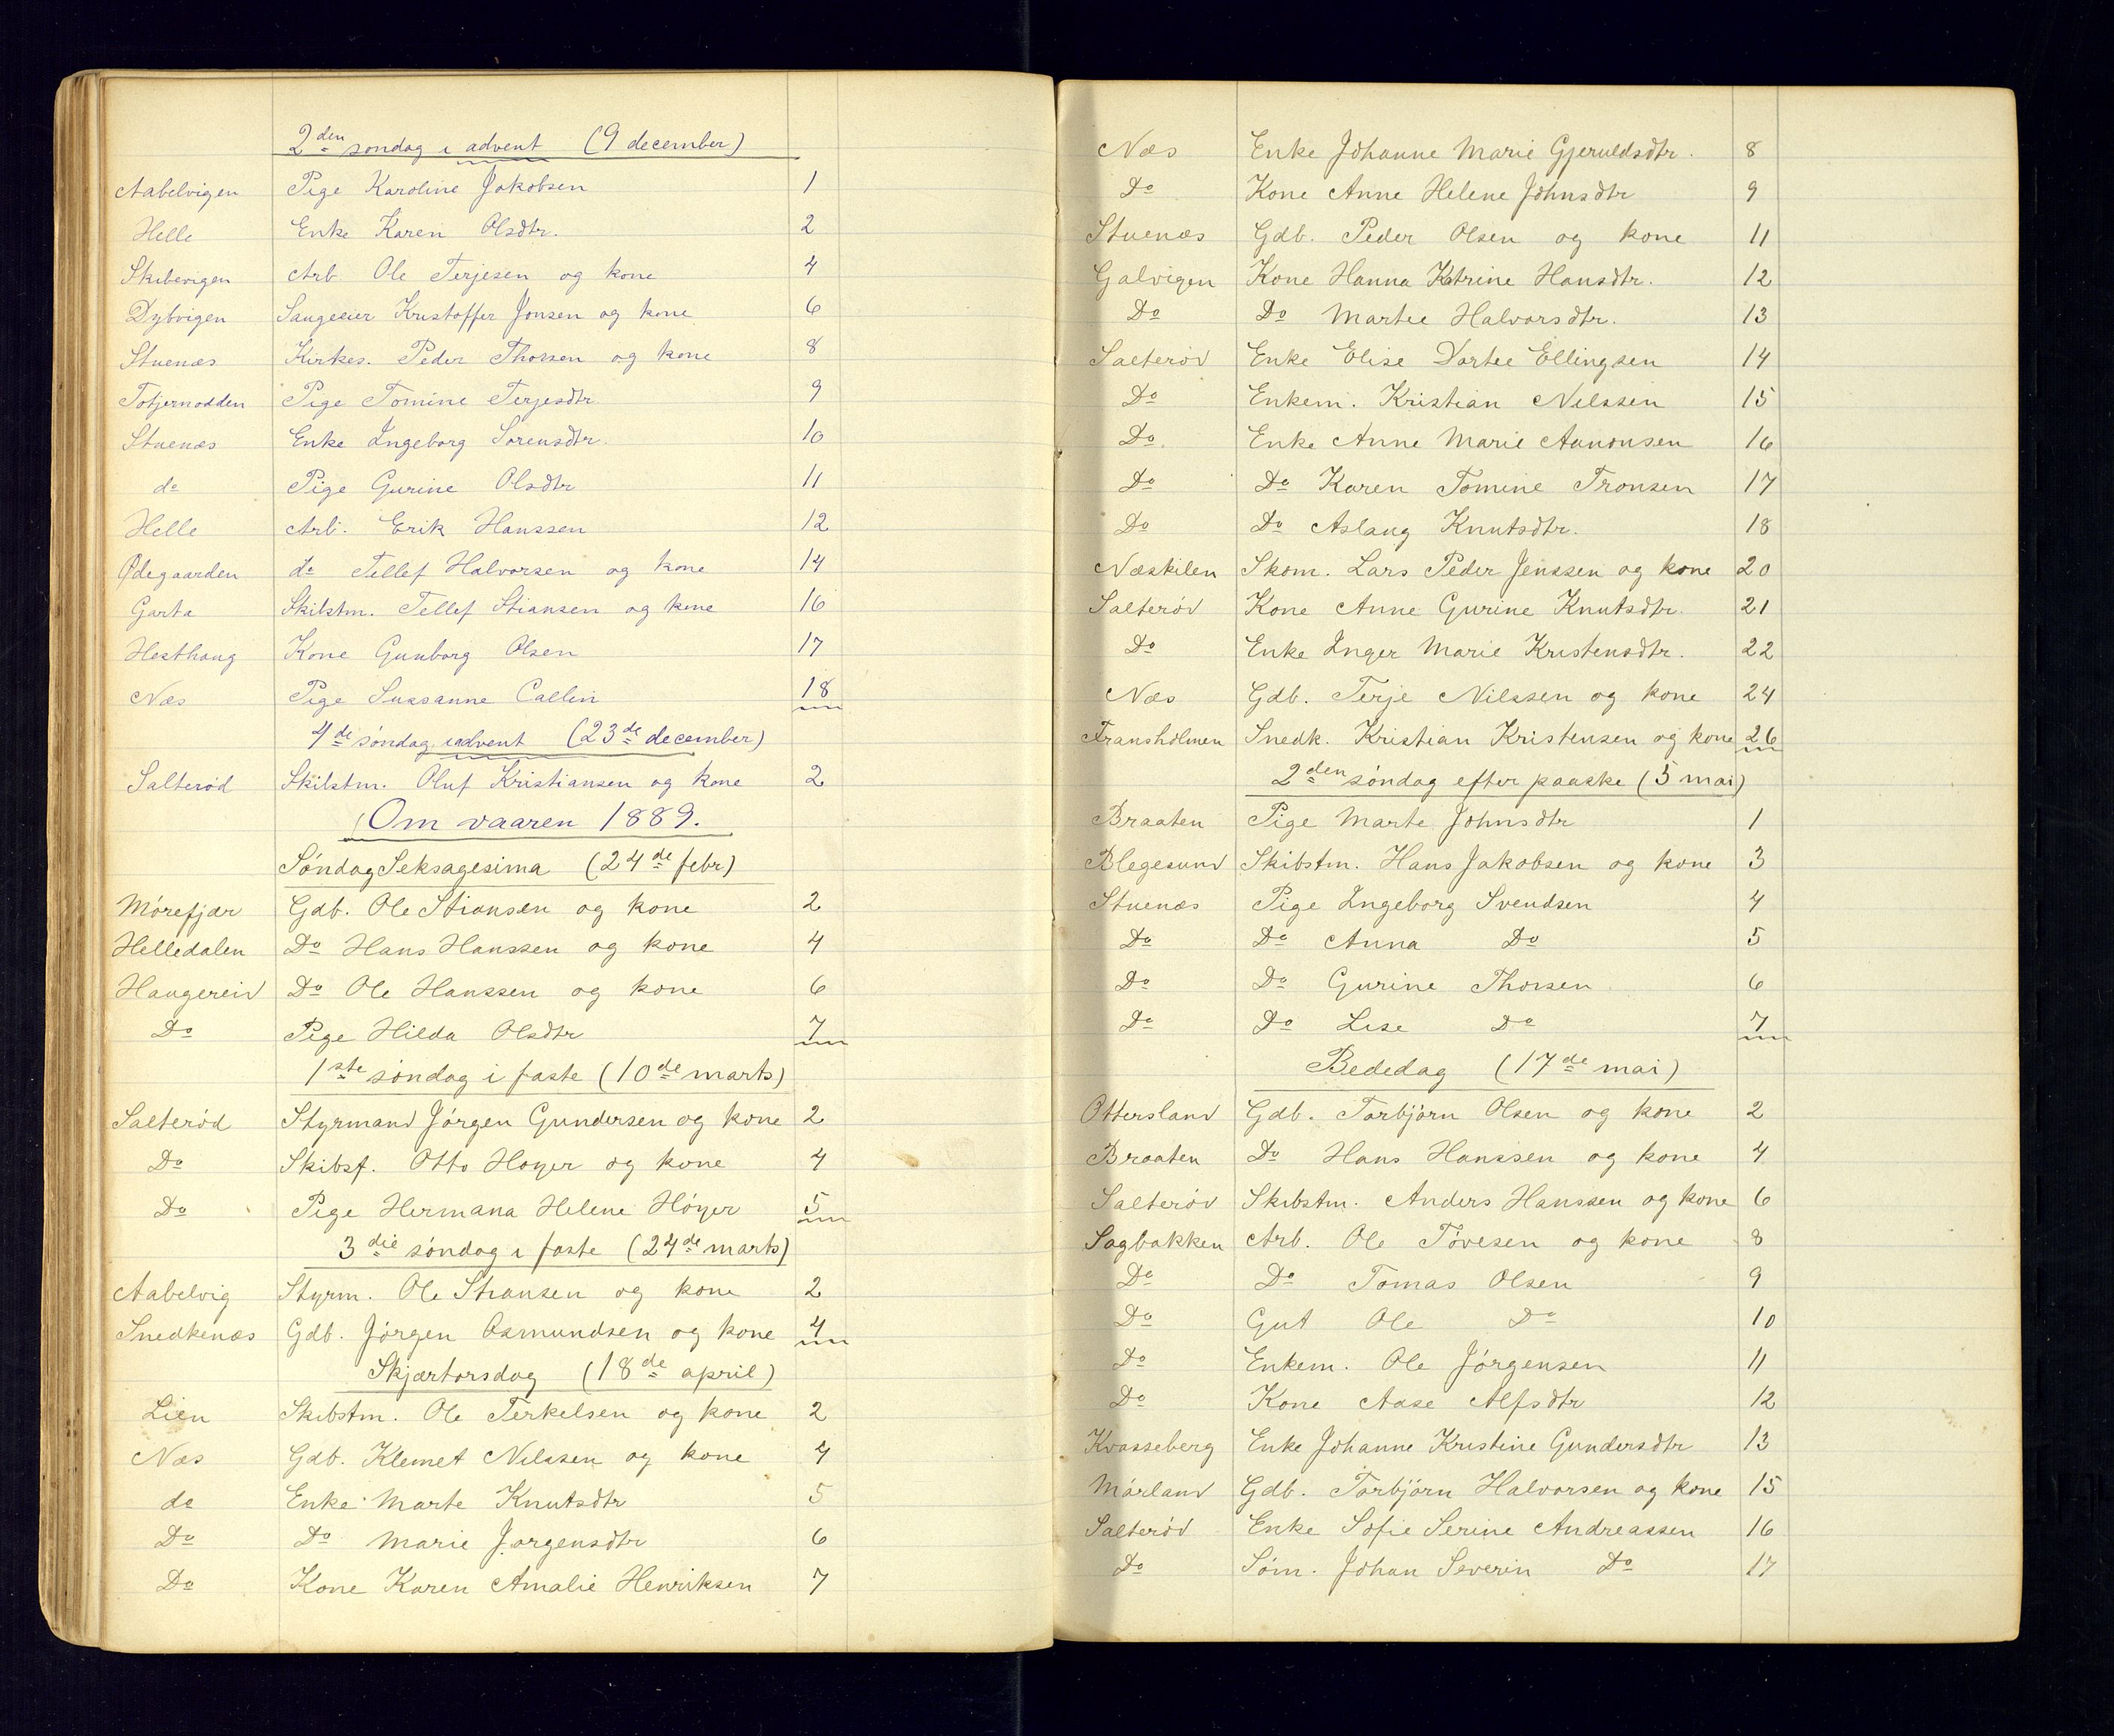 2den søndag i advent (9 december)
Aabelvigen Pige Karoline Jakobsen 1
Helle Enke Karen Olsdtr. 2
Skibevigen Arb. Ole Terjesen og kone 4
Dybvigen Saugeeier Kristoffer Jonsen og kone 6
Stuenæs Kirkes. Peder Thorsen og kone 8
Totjernodden Pige Tomine Terjesdtr 9
Stuenæs Enke Ingeborg Sorensdtr. 10
do Pige Gurine Olsdtr 11
Helle Arb. Erik Hanssen 12
Ødegaarden do Tellef Halvorsen og kone 14
Garta Skibstm. Tellef Stiansen og kone 16
Hesthaug Kone Gunborg Olsen 17
Næs Pige Sussanne Callin 18
4de søndag i advent (23de december)
Salterød Skibstm. Oluf Kristiansen og kone 2
Om vaaren 1889.
Søndag Seksagesima (24de febr)
Mørefjær Gdb. Ole Stiansen og kone 2
Helledalen Do Hans Hanssen og kone 4
Haugereid Do Ole Hanssen og kone 6
Do Pige Hilda Olsdtr 7
1ste søndag i faste (10de marts)
Salterød Styrmand Jørgen Gundersen og kone 2
Do Skibsf. Otto Hoyer og kone 4
Do Pige Hermana Helene Høyer 5
3die søndag i faste (24de marts)
Aabelvig Styrm. Ole Stiansen og kone 2
Snedkenæs Gdb. Jørgen Osmundsen og kone 4
Skjærtorsdag (18de april)
Lien Skibstm. Ole Terkelsen og kone 2
Næs Gdb. Klemet Nilssen og kone 4
do Enke Marte Knutsdtr 5
Do Do Marie Jorgensdtr 6
Do Kone Karen Amalie Henriksen 7
Næs Enke Johanne Marie Gjeruldsdtr. 8
Do Kone Anne Helene Johnsdtr 9
Stuenæs Gdb. Peder Olsen og kone 11
Galvigen Kone Hanna Katrine Hansdtr. 12
Do Do Martee Halvorsdtr. 13
Salterød Enke Elise Dortee Ellingsen 14
Do Enkem. Kristian Nilssen 15
Do. Enke Anne Marie Aanonsen 16
Do Do Karen Tomine Tronsen 17
Do Do Aslaug Knutsdtr. 18
Næskilen Skom. Lars Peder Jenssen og kone 20
Salterød Kone Anne Gurine Knutsdtr. 21
Do Enke Inger Marie Kristensdtr. 22
Næs Gdb. Terje Nilssen og kone 24
Fransholmen Snedk. Kristian Kristensen og kone 26
2den søndag efter paaske (5 mai)
Braaten Pige Marte Johnsdtr 1
Blegesund Skibstm. Hans Jakobsen og kone 3
Stuenæs Pige Ingeborg Svendsen 4
Do Do Anna Do 5
Do Do Gurine Thorsen 6
Do Do Lise Do 7
Bededag (17de mai)
Ottersland Gdb. Torbjørn Olsen og kone 2
Braaten Do Hans Hanssen og kone 4
Salterød Skibstm. Anders Hanssen og kone 6
Sagbakken Arb. Ole Tovesen og kone 8
Do Do Tomas Olsen 9
Do Gut Ole Do 10
Do Enkem. Ole Jørgensen 11
Do Kone Aase Alfsdtr 12
Kvasseberg Enke Johanne Kristine Gundersdtr 13
Mørland Gdb. Torbjørn Halvorsen og kone 15
Salterød Enke Sofie Serine Andreassen 16
Do Søm. Johan Severin Do 17